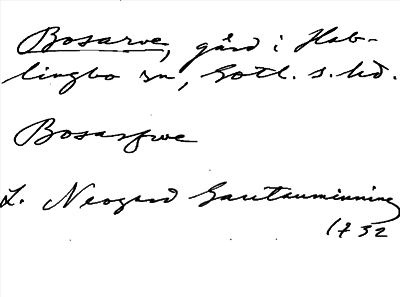 Bosarve, gård i Hab-
lingbo sn, Gotl. s. hd.
Bosarfwe
L. Neogard Gautauminning
1732